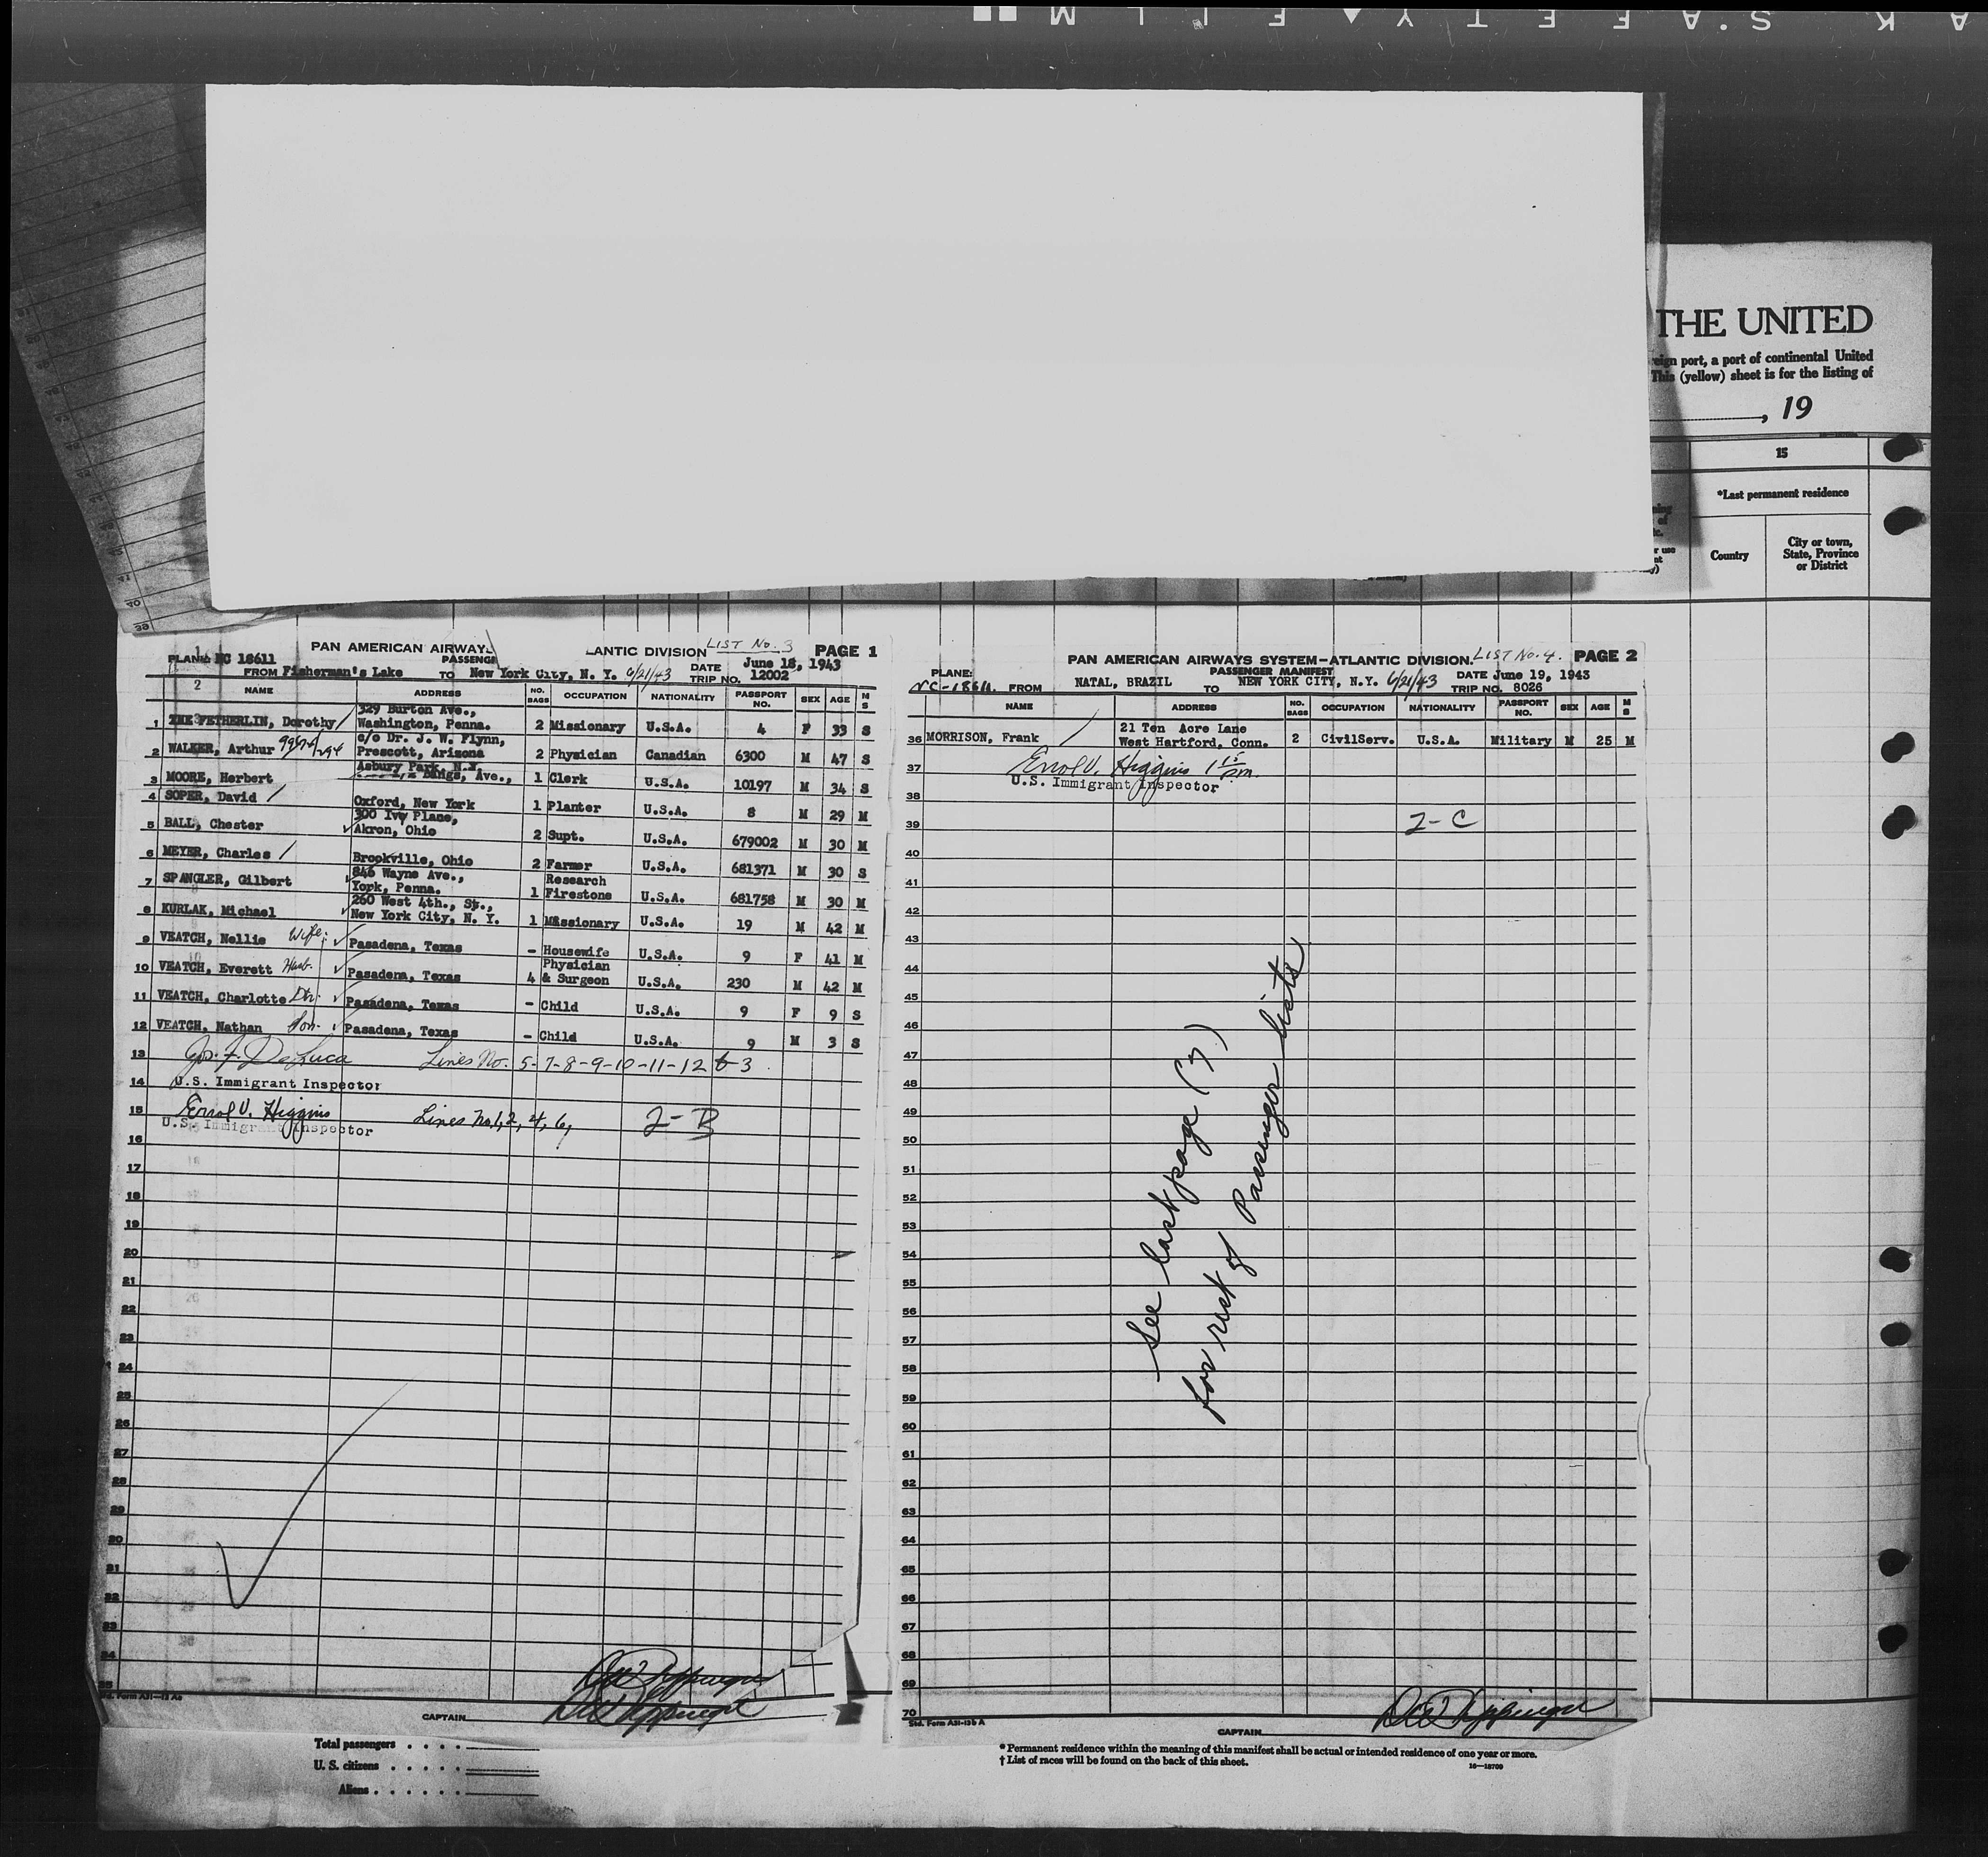 THE UNITED
eign port, a port of continental United
This (yellow) sheet is for the listing of
, 19
15
*Last permanent residence
Country
City or town, State, Province or District
PAN AMERICAN AIRWAYS
LANTIC DIVISION LIST No. 3 PAGE 1
PLANE NC 18611
PASSENG
DATE June 18, 1943
FROM Fisherman's Lake TO New York City, N. Y. 6/21/43 TRIP NO. 12002
2
NAME ADDRESS NO. BAGS OCCUPATION NATIONALITY PASSPORT NO. SEX AGE M S
329 Burton Ave.,
1 FETHERLIN, Dorothy / Washington, Penna. 2 Missionary U.S.A. 4 F 33 S
c/o Dr. J. W. Flynn,
2 WALKER, Arthur Prescott, Arizona 2 Physician Canadian 6300 M 47 S
Asbury Park, N.J.
3 MOORE, Herbert Bangs, Ave., 1 Clerk U.S.A. 10197 M 34 S
4 SOPER, David / Oxford, New York 1 Planter U.S.A. 8 M 29 M
300 Ivy Plane,
5 BALL, Chester Akron, Ohio 2 Supt. U.S.A. 679002 M 30 M
6 MEYER, Charles / Brookville, Ohio 2 Farmer U.S.A. 681371 M 30 S
846 Wayne Ave., Research
7 SPANGLER, Gilbert York, Penna. 1 Firestone U.S.A. 681758 M 30 M
260 West 4th., St.,
8 KURLAK, Michael New York City, N. Y. 1 Missionary U.S.A. 19 M 42 M
9 VEATCH, Nellie Wife. Pasadena, Texas - Housewife U.S.A. 9 F 41 M
Physician
10 VEATCH, Everett Husb. Pasadena, Texas 4 & Surgeon U.S.A. 230 M 42 M
11 VEATCH, Charlotte Dtr. Pasadena, Texas - Child U.S.A. 9 F 9 S
12 VEATCH, Nathan Son. Pasadena, Texas - Child U.S.A. 9 M 3 S
13 Jos. F. DeLuca Lines No. 5-7-8-9-10-11-12 & 3
14 U.S. Immigrant Inspector
15 Errol V. Higgins Lines No. 1, 2, 4, 6, 2-B
U.S. Immigrant Inspector
16
17
18
19
20
21
22
23
24
25
26
27
28
29
30
31
32
33
34
35
CAPTAIN
Total passengers
U. S. citizens
Aliens
PAN AMERICAN AIRWAYS SYSTEM—ATLANTIC DIVISION. LIST No. 4. PAGE 2
PLANE:
PASSENGER MANIFEST
DATE June 19, 1943
NC-18611. FROM NATAL, BRAZIL TO NEW YORK CITY, N.Y. 6/21/43 TRIP NO. 8026
NAME ADDRESS NO. BAGS OCCUPATION NATIONALITY PASSPORT NO. SEX AGE M S
21 Ten Acre Lane
36 MORRISON, Frank / West Hartford, Conn. 2 CivilServ. U.S.A. Military M 25 M
37 Errol V. Higgins 1 15 pm.
U.S. Immigrant Inspector
38
39 2-C
40
41
42
43
44
45
46
47
48
49
50
51
52
53
54
55
56
57
58
59
60
61
62
63
64
65
66
67
68
69
70
See last page (7)
for rest of Passenger lists
Std. Form A31-13b A
CAPTAIN
* Permanent residence within the meaning of this manifest shall be actual or intended residence of one year or more.
† List of races will be found on the back of this sheet.
16—18709